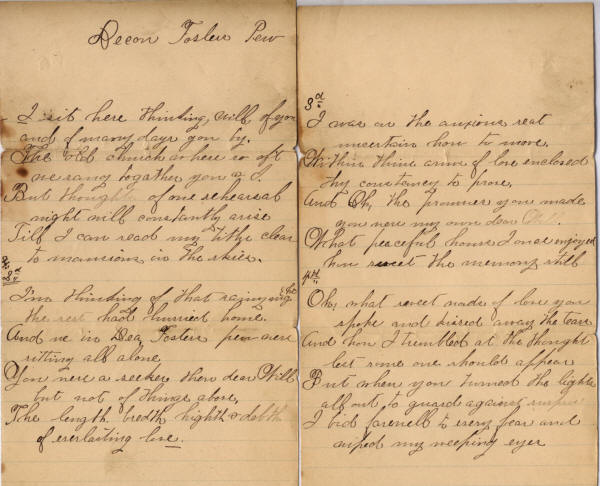 Decon Foster Pew
I sit here thinking, Will of you
and of many days gon by.
The old church where so oft
we sang together you & I.
But thoughts of one rehersal
night will constantly arise
Till I can read my title clear
to mansions in the skies.
2d
I'm thinking of that rainy
the rest had hurried home.
And we in Dea, Fosters pew were
sitting all alone
You were a seeker then dear Will
but not of things above,
The length bredth highth & debth
of everlasting love.
3d
I was on the anxious seat
uncertain how to move.
Within thine arms of love enclosed
thy constancy to prove,
And Oh, the promises you made
you were my own dear Will
What peaceful hours I once enjoyed
how sweet the memory still
4th
Oh, what sweet words of love you
spoke and kissed away the tear
And how I trembled at the thought
lest some one should appear
But when you turned the lights
all out to guard against surprise
I bid farewell to every fear and
wiped my weeping eyes